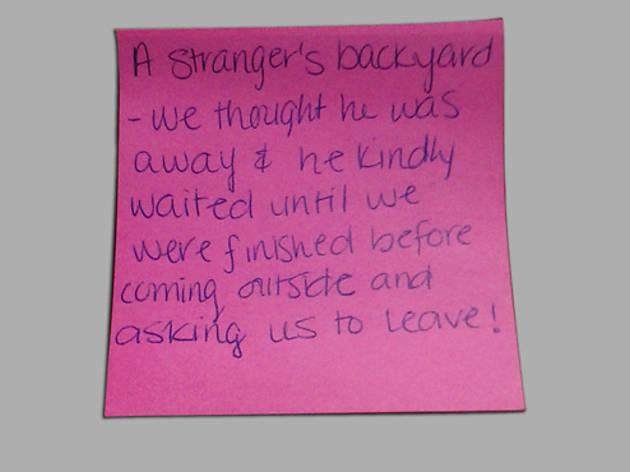 A stranger's backyard
- we thought he was
away & he kindly
waited until we
were finished before
coming outside and
asking us to leave!